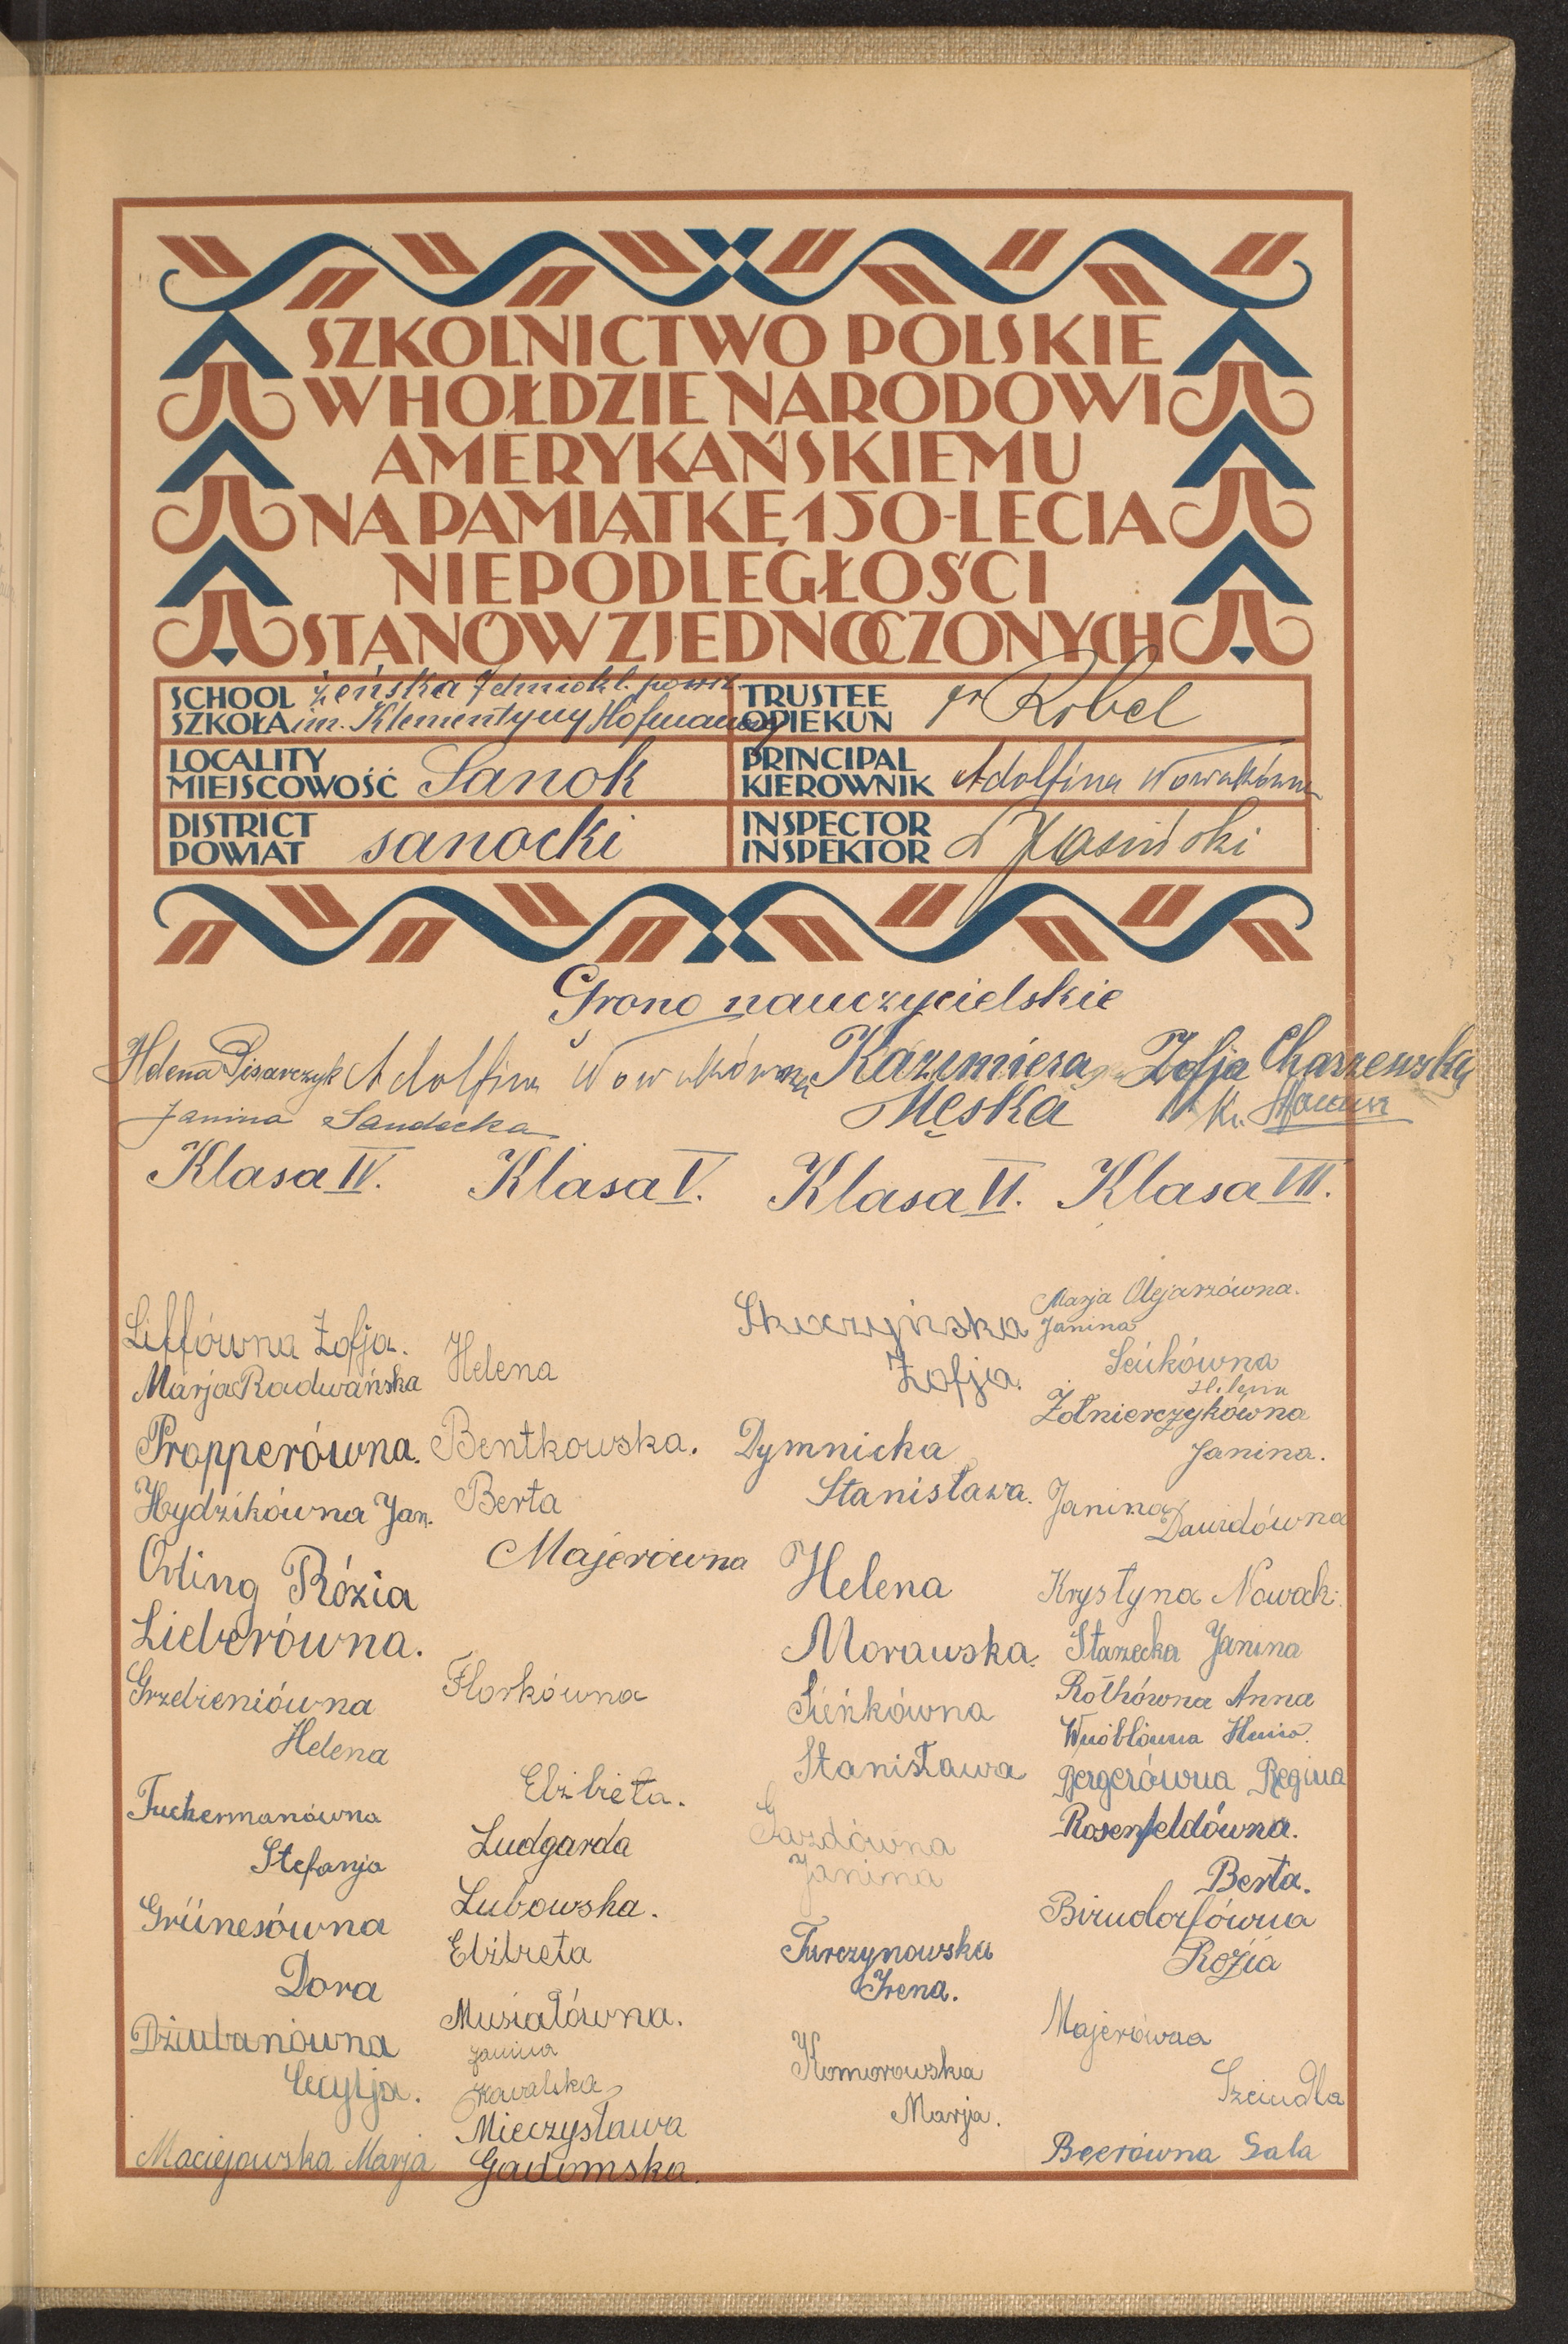 SZKOLNICTWO POLSKIE
W HOŁDZIE NARODOWI
AMERYKAŃSKIEMU
NA PAMIĄTKĘ 150-LECIA
NIEPODLEGŁOŚCI
STANÓW ZJEDNOCZONYCH
SCHOOL
SZKOŁA
żeńska 7dmiokl. powsz.
im. Klementyny Hofmanowej
TRUSTEE
OPIEKUN
Robel
LOCALITY
MIEJSCOWOŚĆ
Sanok
PRINCIPAL
KIEROWNIK
Adolfina Nowakówna
DISTRICT
POWIAT
sanocki
INSPECTOR
INSPEKTOR
Jasiński
Grono nauczycielskie
Helena Pisarczyk
Adolfina Nowakówna
Kazimiera
Męska
Zofja Charzewska
Janina Sandecka
Klasa IV.
Klasa V.
Klasa VI.
Klasa VII.
Liffówna Zofja.
Marja Radwańska
Propperówna.
Hydzikówna Jan.
Orling Rózia
Lieberówna.
Grzebieniówna
Helena
Tuchermanówna
Stefanja
Grünesówna
Dora
Dziubanówna
Cecylja.
Maciejowska Marja
Helena
Bentkowska.
Berta
Majerówna
Florkówna
Elżbieta.
Ludgarda
Lubowska.
Elżbieta
Musiałówna.
Janina
Kowalska
Mieczysława
Gadomska.
Skoczyńska
Zofja.
Dymnicka
Stanisława.
Helena
Morawska.
Sieńkówna
Stanisława
Gazdówna
Janina
Turczynowska
Irena.
Komorowska
Marja.
Marja Olejarzówna.
Janina
Seńkówna
Helena
Żołnierczykówna
Janina.
Janina
Dawidówna
Krystyna Nowak.
Starecka Janina
Rothówna Anna
Wróblówna
Bergerówna Regina
Rosenfeldówna.
Berta.
Birndorfówna
Rózia
Majerówna
Szeindla
Beerówna Sala